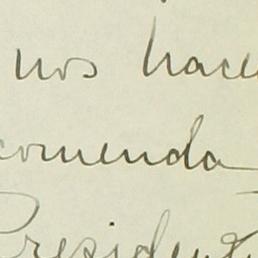 nos hace
comenda
Presidente